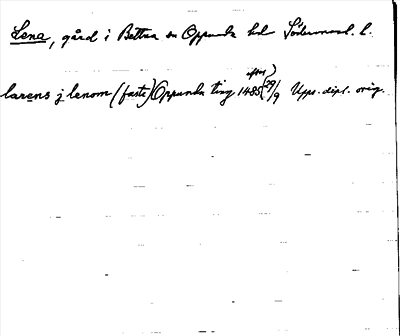 Lena, gård i Bettna sn Oppunda hd Södermanl. l.
larens j lenom (faste) Oppunda ting 1485 (efter) 29/9 Upps. dipl. orig.